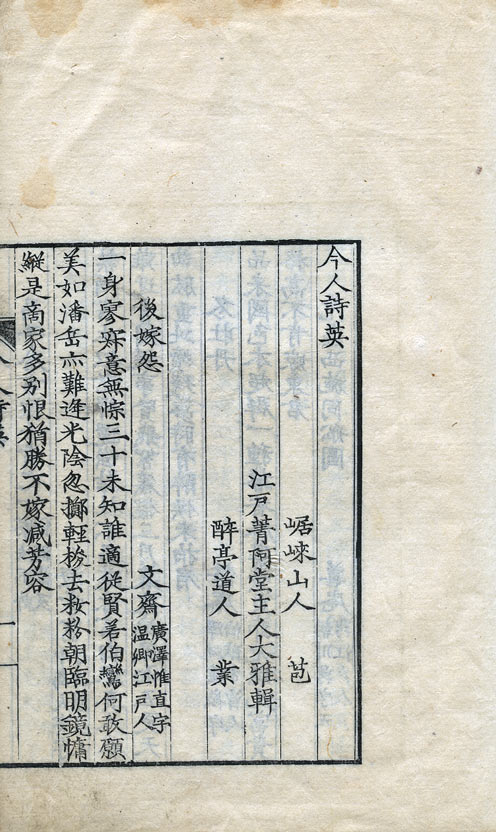 今人詩英
崌崍山人　苞
江戸菁莪堂主人大雅輯
醉亭道人　業
後嫁怨　文齋廣澤惟直字
温卿江戸人
一身寥寂意無悰三十未知誰適從賢若伯鸞何敢願
美如潘岳亦難逢光陰忽擲輕梭去粉朝臨明鏡慵
縱是商家多別恨猶勝不嫁減芳容
人詩英
一